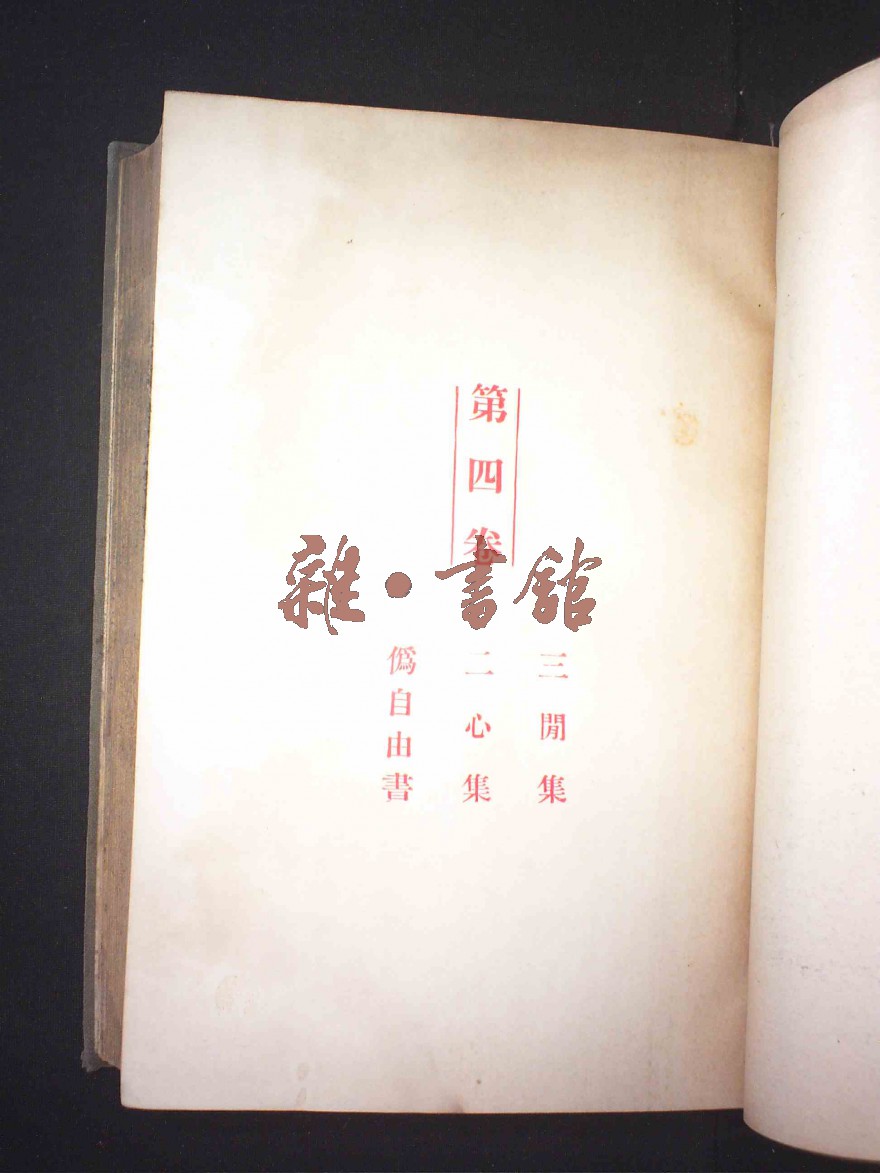 第四卷
雜·書館
三閒集
二心集
僞自由書